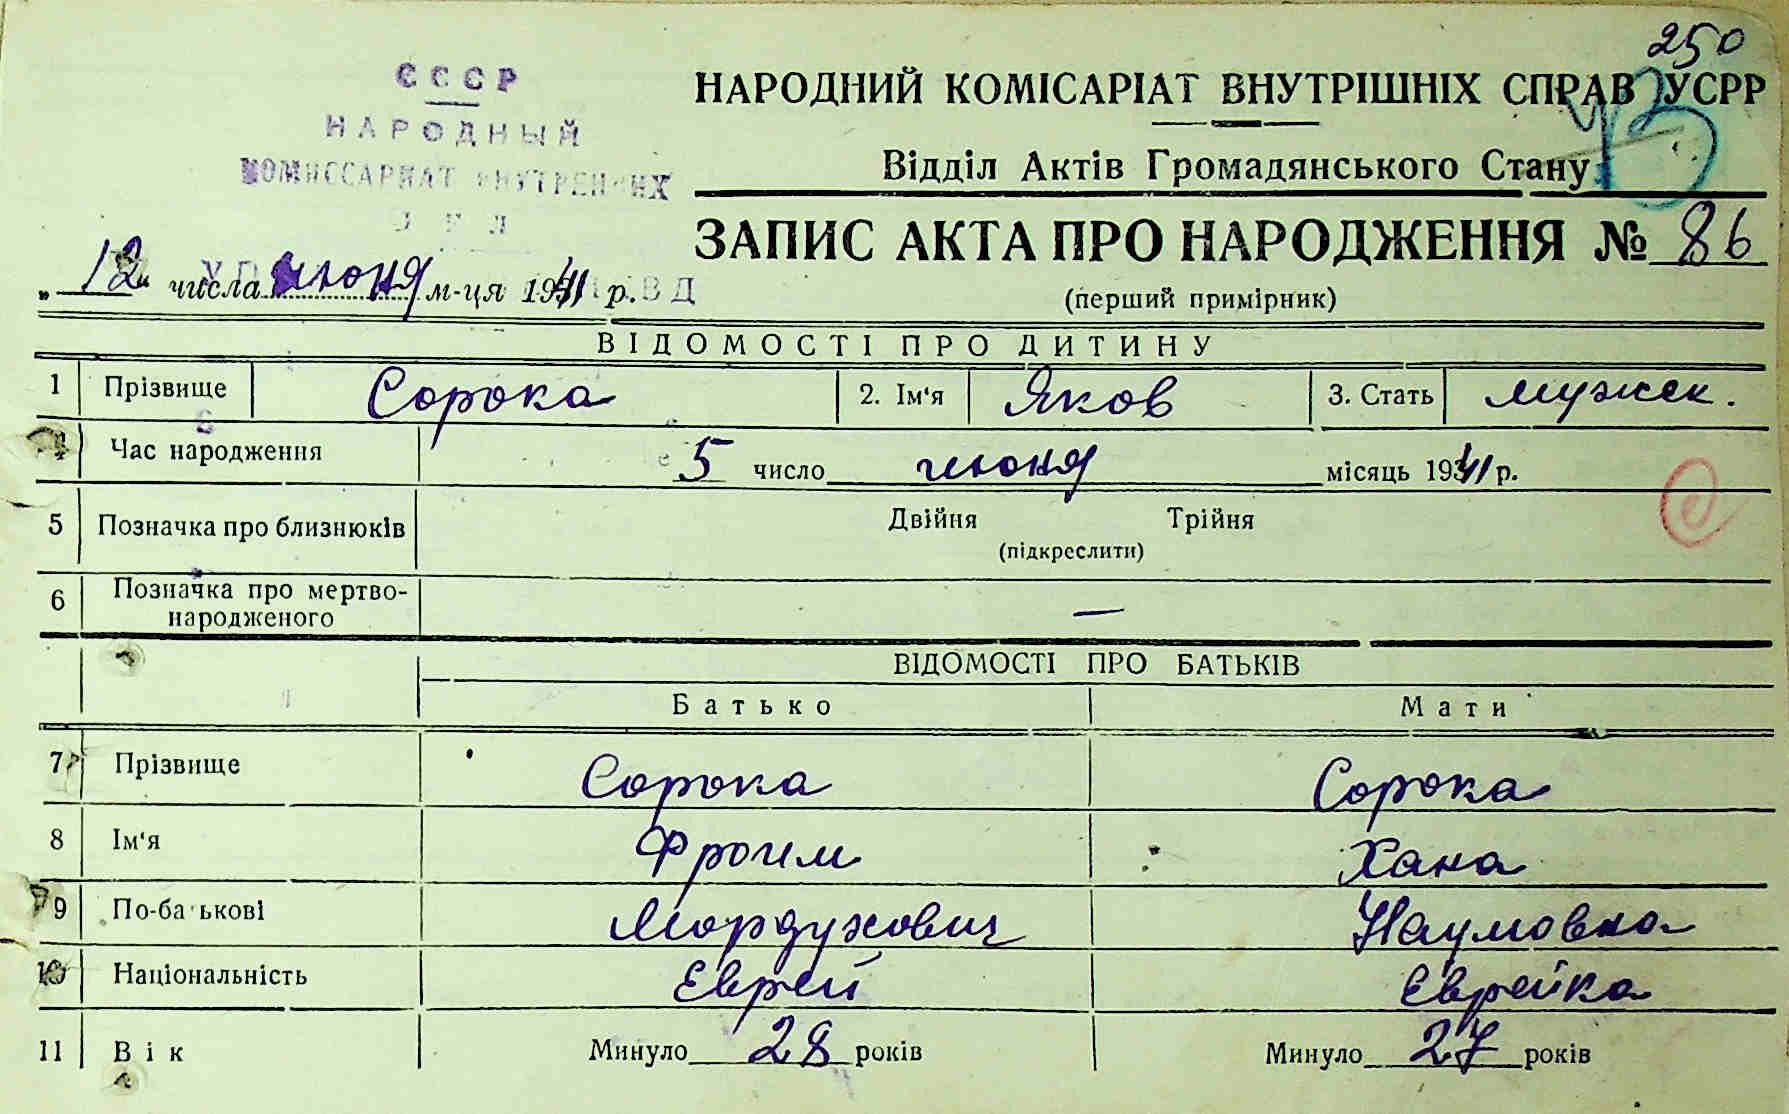 250
СССР
НАРОДНЫЙ
КОМИССАРИАТ ВНУТРЕННИХ
ДЕЛ
НАРОДНИЙ КОМІСАРІАТ ВНУТРІШНІХ СПРАВ УСРР
Відділ Актів Громадянського Стану
ЗАПИС АКТА ПРО НАРОДЖЕННЯ № 86
(перший примірник)
„12“ числа июня м-ця 1941 р.
ВІДОМОСТІ ПРО ДИТИНУ
1 Прізвище Сорока 2. Ім'я Яков 3. Стать мужск.
4 Час народження 5 число июня місяць 1941 р.
5 Позначка про близнюків Двійня Трійня
(підкреслити)
6 Позначка про мертво-
народженого —
ВІДОМОСТІ ПРО БАТЬКІВ
Батько Мати
7 Прізвище Сорока Сорока
8 Ім'я Фроим Хана
9 По-батькові Мордухович Наумовна
10 Національність Еврей Еврейка
11 Вік Минуло 28 років Минуло 27 років